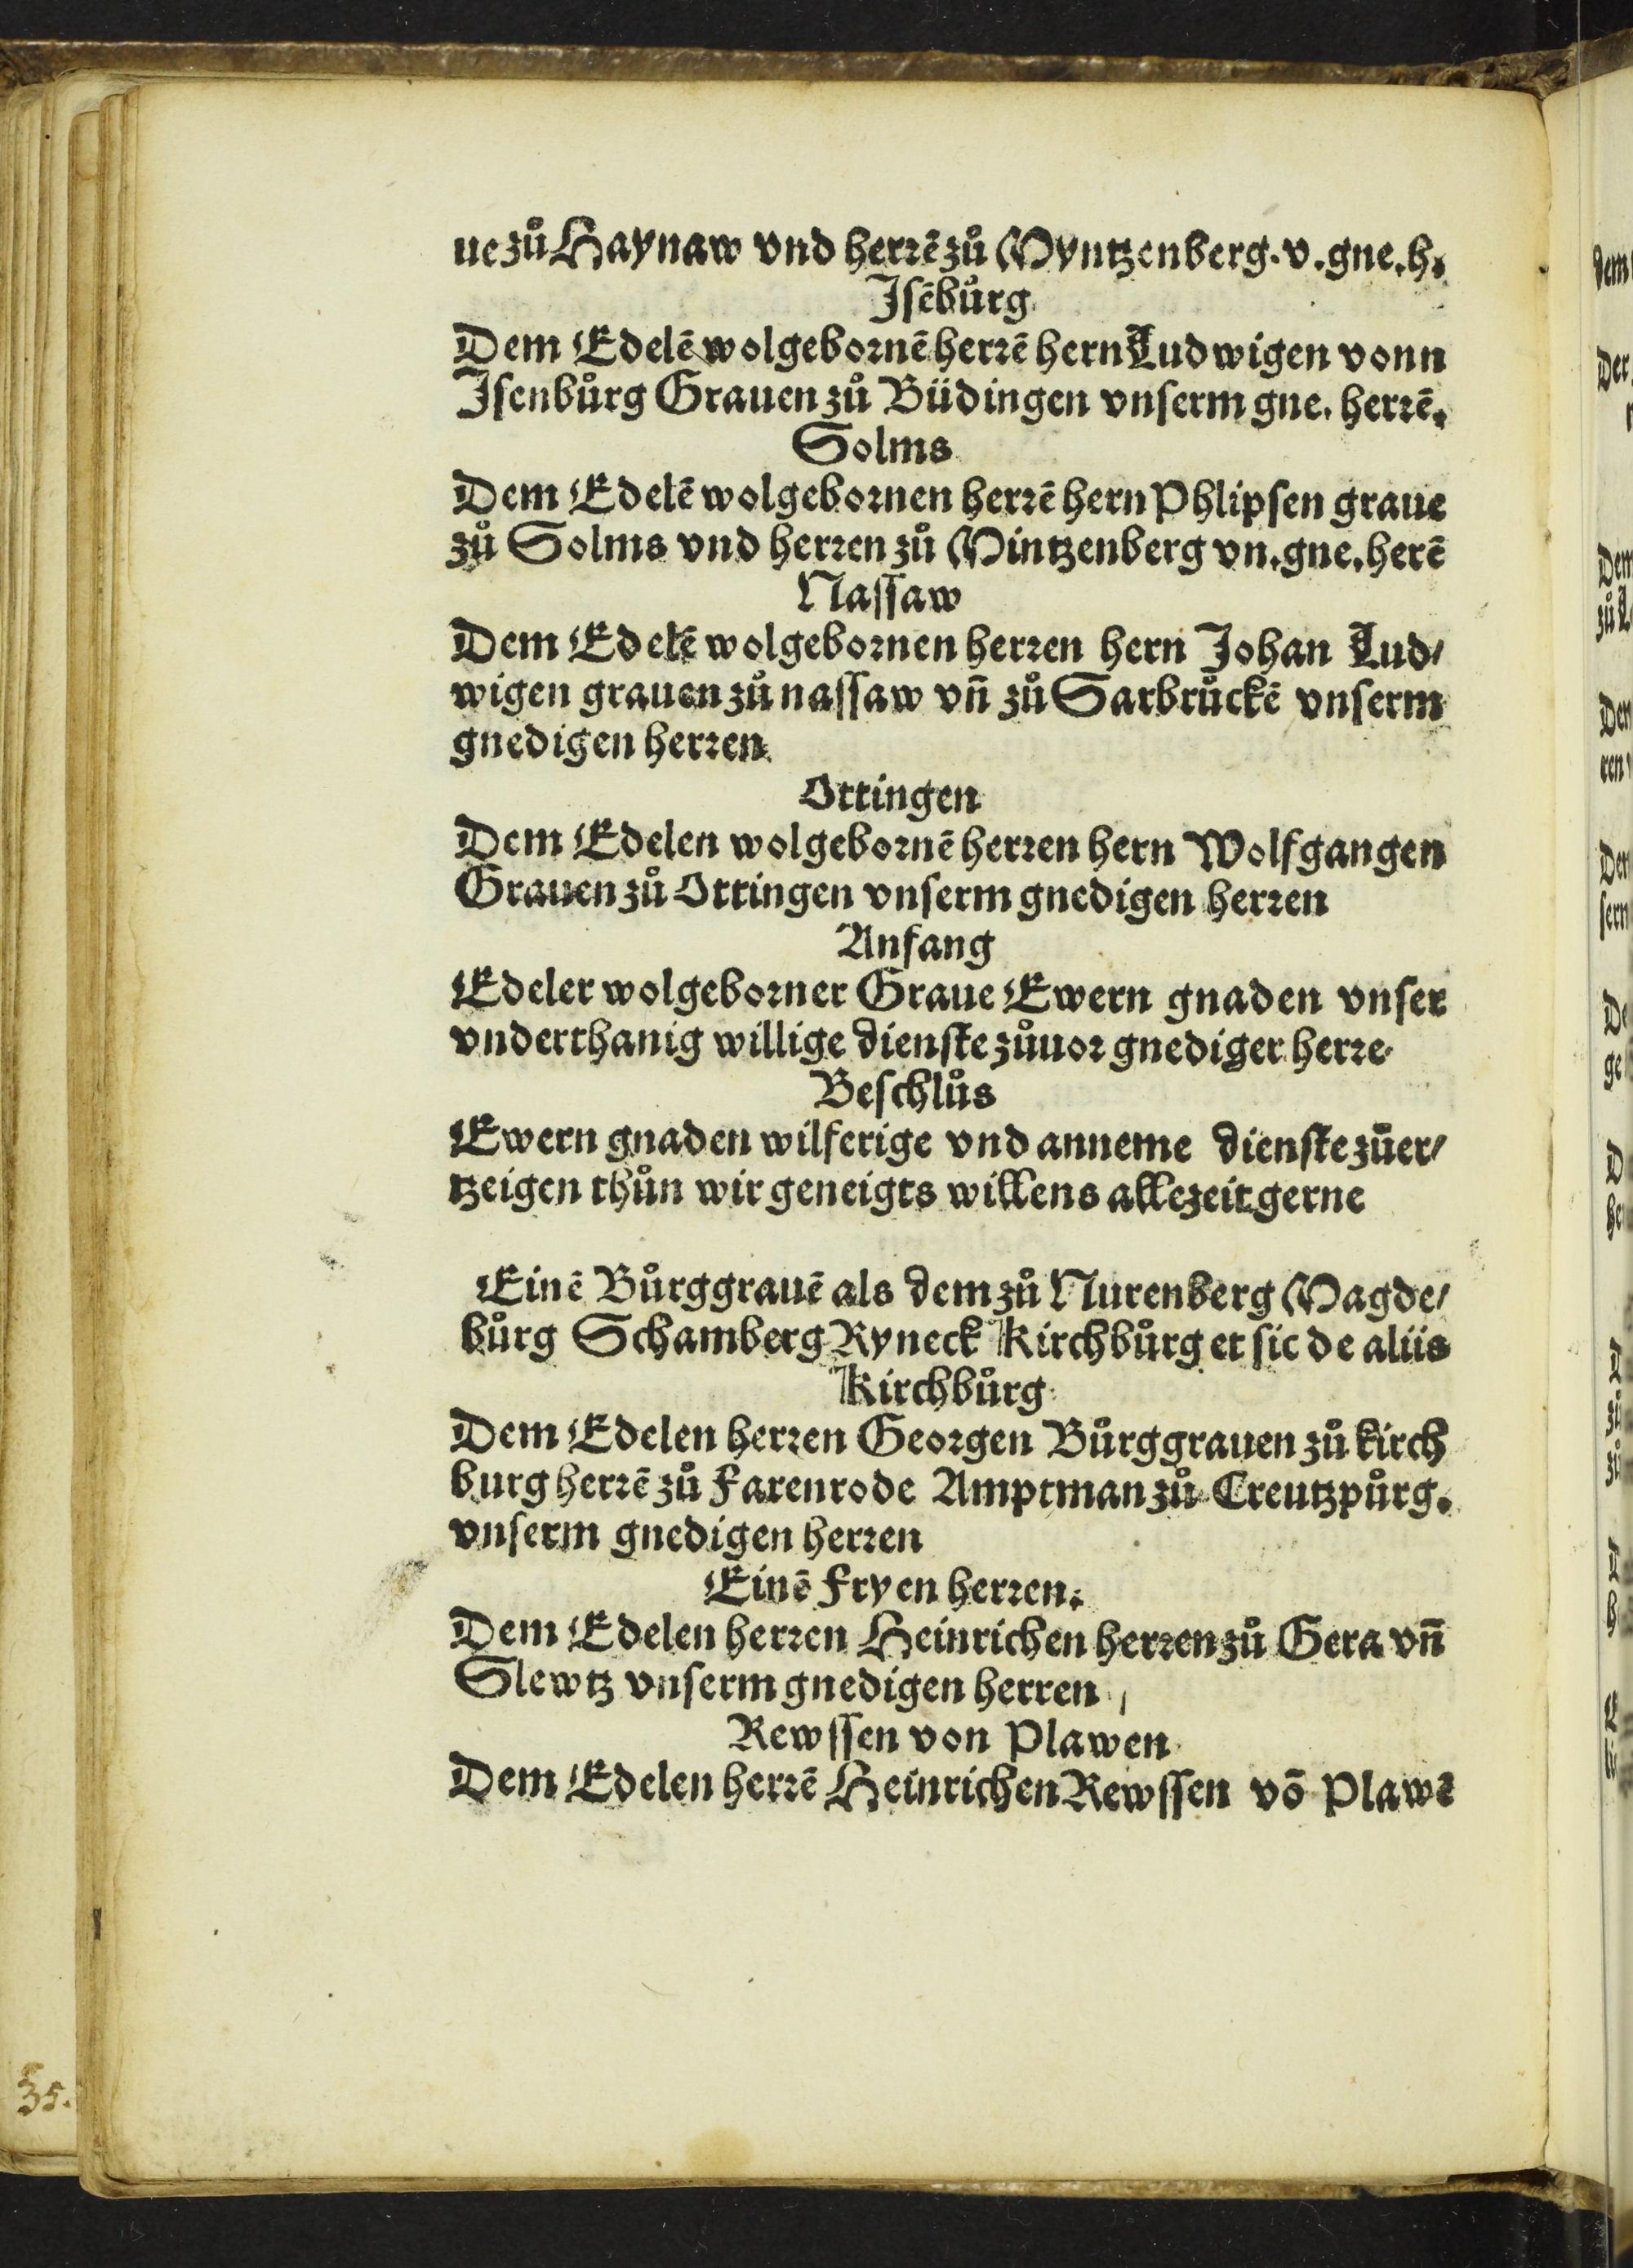 ue zů Haynaw vnd herrē zů Myntzenberg. v. gne. h.
Isēbůrg
Dem Edelē wolgebornē herrē hern Ludwigen vonn
Isenbůrg Grauen zů Büdingen vnserm gne. herrē.
Solms
Dem Edelē wolgebornen herrē hern Phlipsen graue
zů Solms vnd herren zů Mintzenberg vn. gne. herē
Nassaw
Dem Edelē wolgebornen herren hern Johan Lud/
wigen grauen zů nassaw vn̄ zů Sarbrůckē vnserm
gnedigen herren
Ottingen
Dem Edelen wolgebornē herren hern Wolfgangen
Grauen zů Ottingen vnserm gnedigen herren
Anfang
Edeler wolgeborner Graue Ewern gnaden vnser
vnderthanig willige dienste zůuor gnediger herre
Beschlůs
Ewern gnaden wilferige vnd anneme dienste zůer/
tzeigen thůn wir geneigts willens allezeit gerne
Einē Bůrggrauē als dem zů Nurenberg Magde/
bůrg Schamberg Ryneck Kirchbůrg et sic de aliis
Kirchbůrg
Dem Edelen herren Georgen Bůrggrauen zů kirch
burg herrē zů Farenrode Amptman zů Creutzpůrg.
vnserm gnedigen herren
Einē Fryen herren.
Dem Edelen herren Heinrichen herren zů Gera vn̄
Slewtz vnserm gnedigen herren
Rewssen von Plawen
Dem Edelen herrē Heinrichen Rewssen vō Plawē
35.